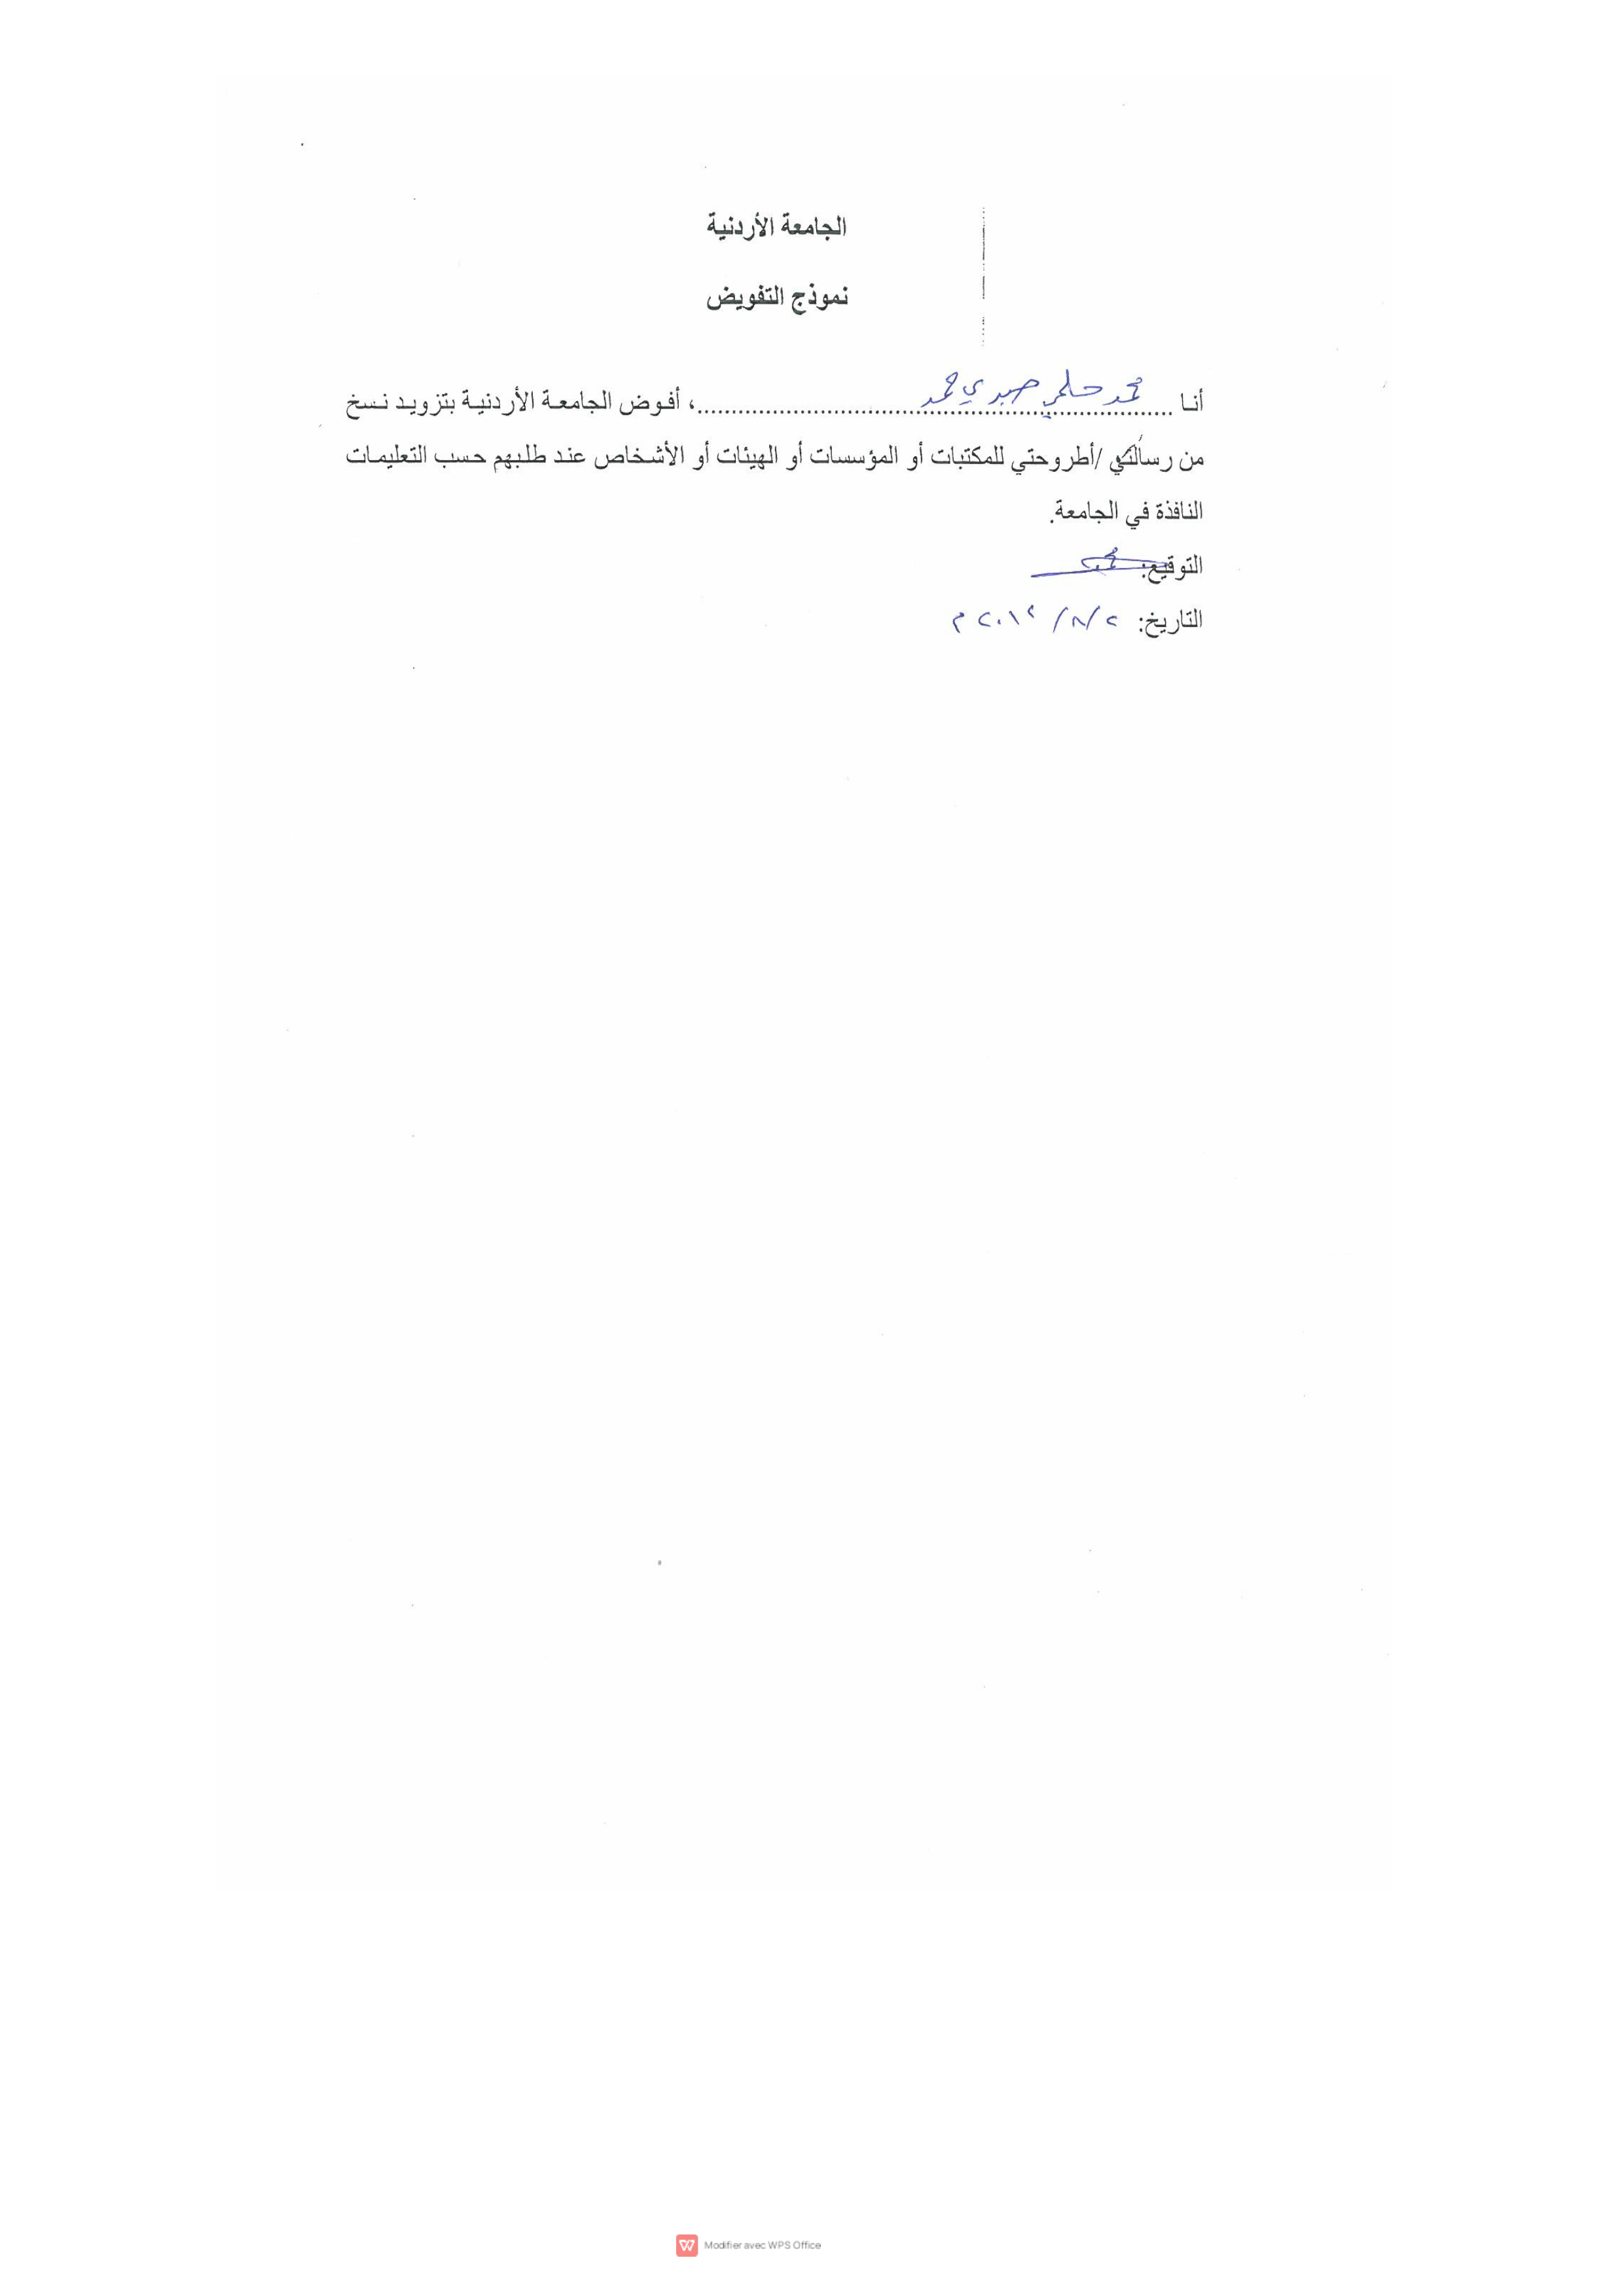 الجامعة الأردنية
نموذج التفويض
أنا محمد حلمي صبري محمد ........، أفوض الجامعة الأردنية بتزويد نسخ
من رسالتي /أطروحتي للمكتبات أو المؤسسات أو الهيئات أو الأشخاص عند طلبهم حسب التعليمات
النافذة في الجامعة.
التوقيع:
التاريخ: ٢/ ٨/ ٢٠١٢ م
Modifier avec WPS Office